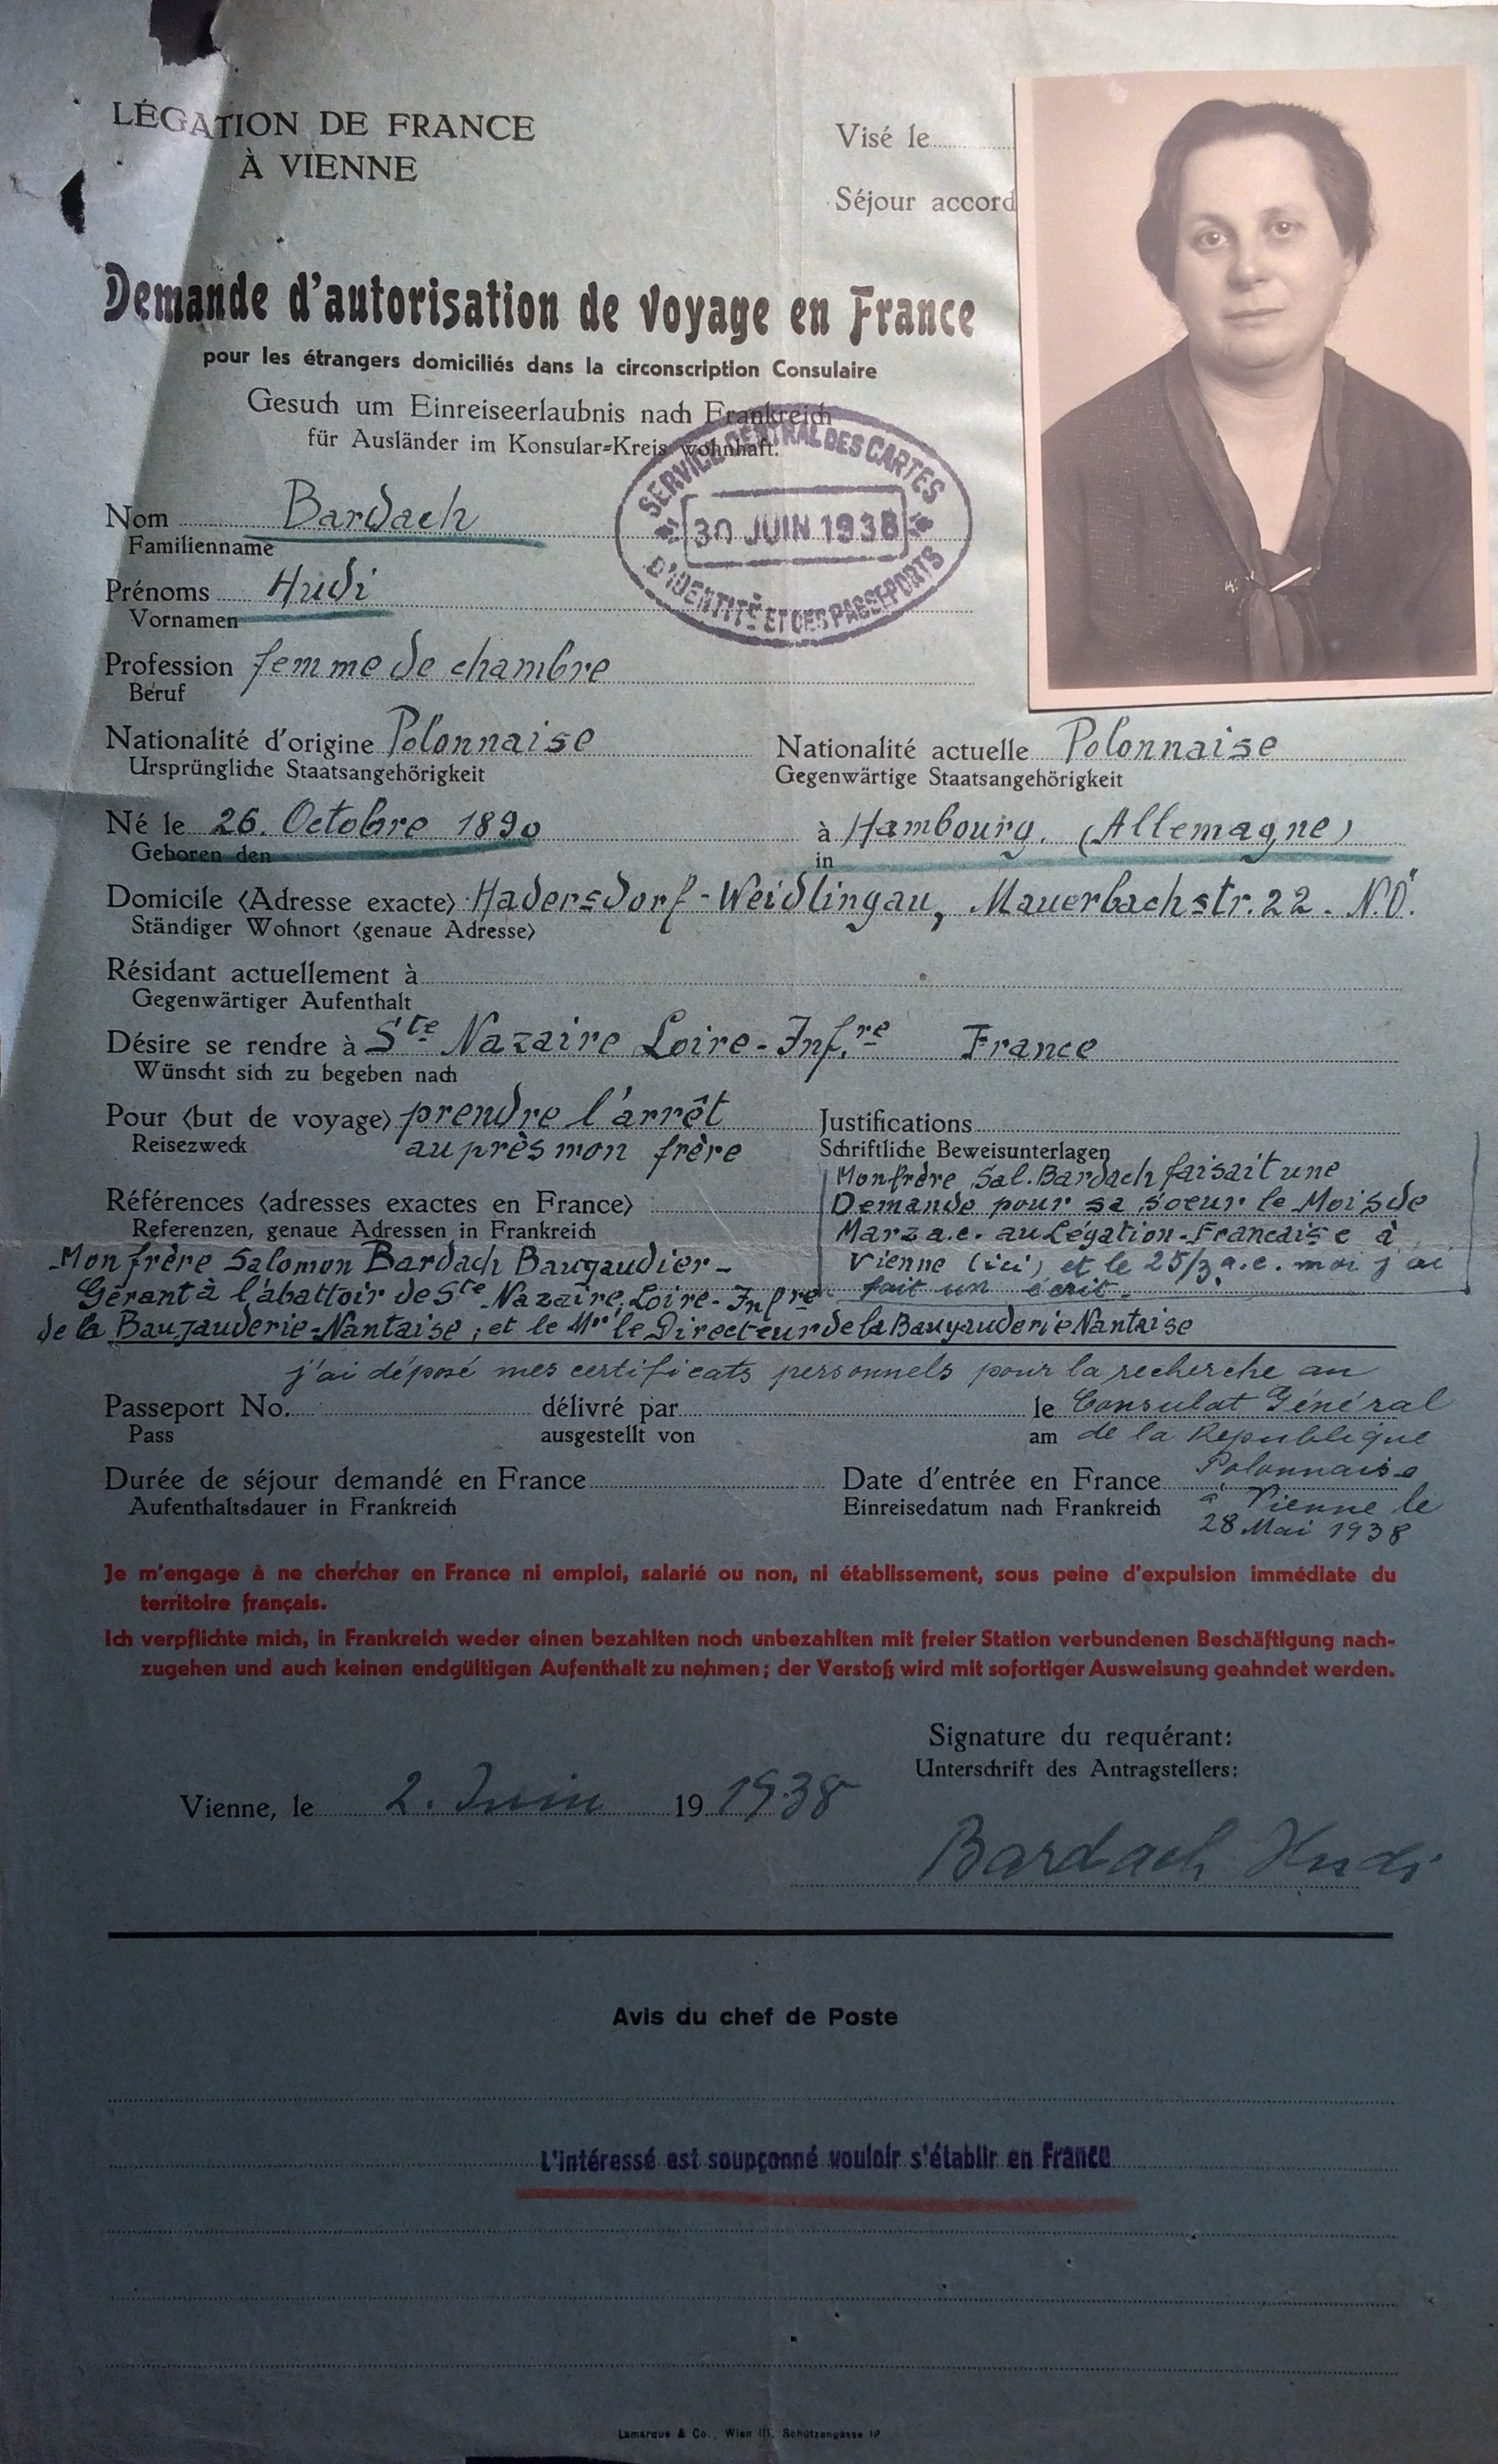 LÉGATION DE FRANCE
À VIENNE
Visé le
Séjour accord
Demande d'autorisation de voyage en France
pour les étrangers domiciliés dans la circonscription Consulaire
Gesuch um Einreiseerlaubnis nach Frankreich
für Ausländer im Konsular-Kreis wohnhaft.
SERVICE CENTRAL DES CARTES
30 JUIN 1938
D'IDENTITÉ ET DES PASSEPORTS
Nom Bardach
Familienname
Prénoms Hudi
Vornamen
Profession femme de chambre
Beruf
Nationalité d'origine Polonnaise Nationalité actuelle Polonnaise
Ursprüngliche Staatsangehörigkeit Gegenwärtige Staatsangehörigkeit
Né le 26. Octobre 1890 à Hambourg. (Allemagne)
Geboren den in
Domicile (Adresse exacte) Hadersdorf-Weidlingau, Mauerbachstr. 22. N.Ö.
Ständiger Wohnort (genaue Adresse)
Résidant actuellement à
Gegenwärtiger Aufenthalt
Désire se rendre à Ste Nazaire Loire-Inf.re France
Wünscht sich zu begeben nach
Pour (but de voyage) prendre l'arrêt Justifications
Reisezweck auprès mon frère Schriftliche Beweisunterlagen
Mon frère Sal. Bardach faisait une
Références (adresses exactes en France) Demande pour sa soeur le Mois de
Referenzen, genaue Adressen in Frankreich Marz a.c. au Légation-Francaise à
Mon frère Salomon Bardach Baugaudier- Vienne (ici) et le 25/3 a.c. moi j'ai
Gérant à l'abattoir de Ste Nazaire, Loire-Infre fait un écrit.
de la Baujauderie-Nantaise, et le Mr le Directeur de la Baugauderie Nantaise
j'ai déposé mes certificats personnels pour la recherche au
Passeport No. délivré par le Consulat Général
Pass ausgestellt von am de la Republique
Polonnaise
Durée de séjour demandé en France Date d'entrée en France
Aufenthaltsdauer in Frankreich Einreisedatum nach Frankreich à Vienne le
28 Mai 1938
Je m'engage à ne chercher en France ni emploi, salarié ou non, ni établissement, sous peine d'expulsion immédiate du
territoire français.
Ich verpflichte mich, in Frankreich weder einen bezahlten noch unbezahlten mit freier Station verbundenen Beschäftigung nach-
zugehen und auch keinen endgültigen Aufenthalt zu nehmen; der Verstoß wird mit sofortiger Ausweisung geahndet werden.
Signature du requérant:
Unterschrift des Antragstellers:
Vienne, le 2. Juin 19 1938
Bardach Hudi
Avis du chef de Poste
L'intéressé est soupçonné vouloir s'établir en France
Lamarque & Co., Wien III, Schützengasse 19